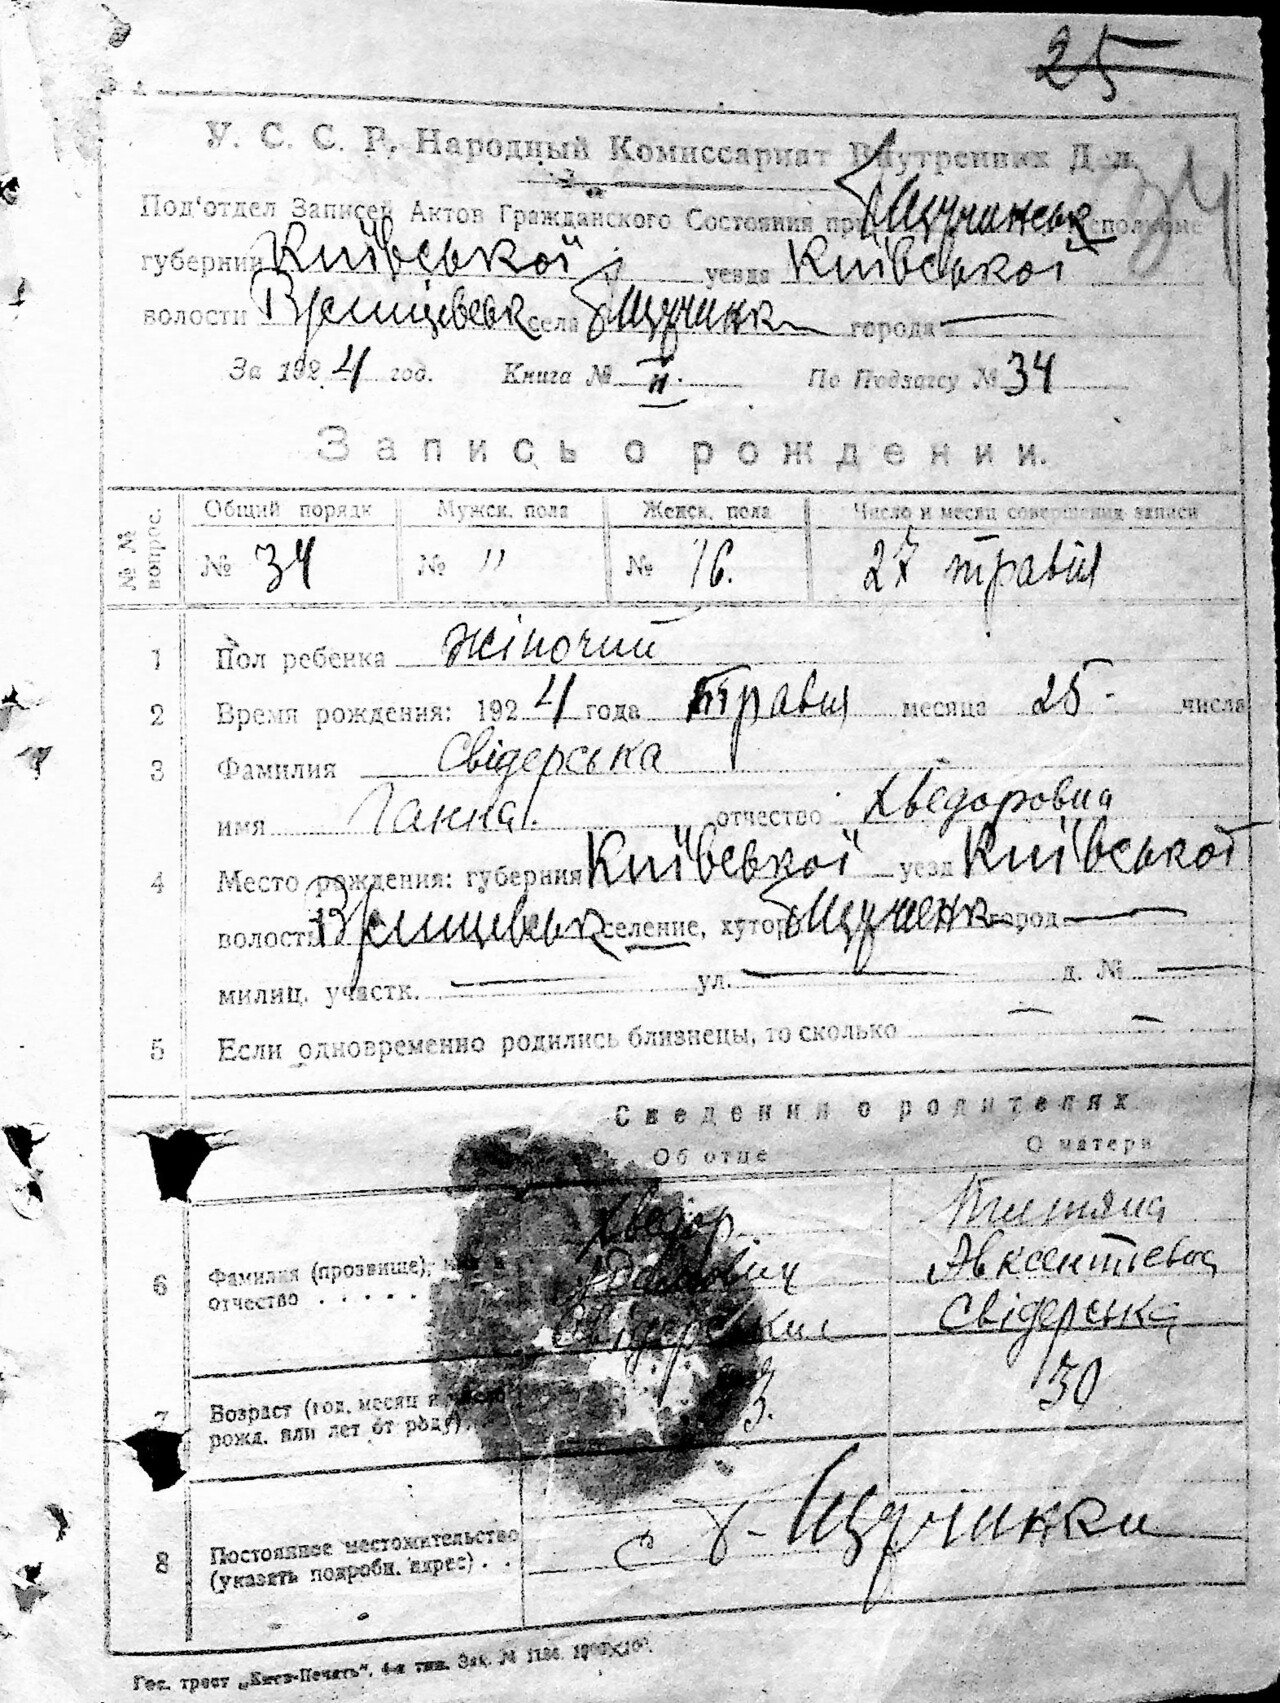 25
34
У. С. С. Р. Народный Комиссариат Внутренних Дел.
Под'отдел Записей Актов Гражданского Состояния при Б Щучинськ Исполкоме
губернии Київської уезда Київської
волости села Б Щучинка города —
За 1924 год. Книга № II. По Подзагсу № 34
Запись о рождении.
№№ вопрос.
Общий порядк Мужск. пола Женск. пола Число и месяц совершения записи
№ 34 № " № 16. 27 травня
1 Пол ребенка жіночий
2 Время рождения: 1924 года травня месяца 25 числа
3 Фамилия Свідерська
имя Ганна. отчество Хведоровна
4 Место рождения: губерния Київської уезд Київської
волость селение, хутор Б Щученк город —
милиц. участк. — ул. — д. № —
5 Если одновременно родились близнецы, то сколько — —
Сведения о родителях
Об отце О матери
6 Фамилия (прозвище), имя и отчество . . . . .
Хведор Свідерський
Татяна Явксентієвна Свідерська
7 Возраст (год, месяц и число рожд. или лет от роду).
30
8 Постоянное местожительство (указать подробн. адрес) . .
с Б- Щучинки
Гос. трест „Киев-Печать", 4-я тип. Зак. №